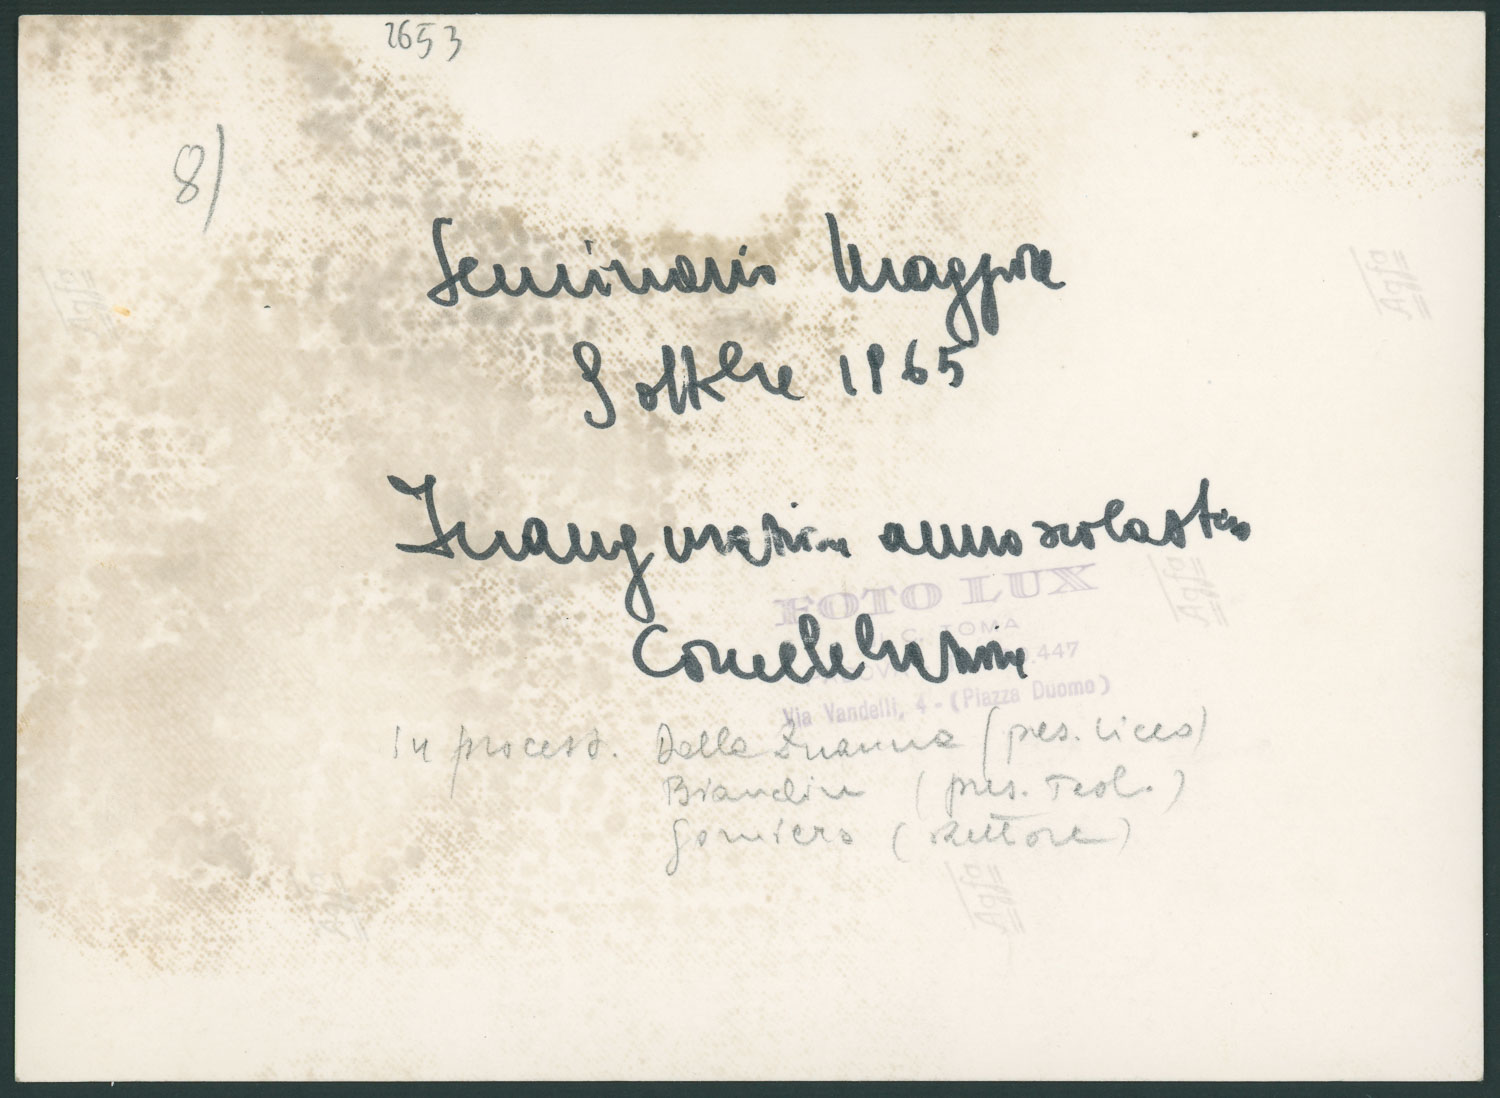 2653
8)
Seminario Maggiore
9 ottobre 1965
Inaugurazione anno scolastico
Concelebrazione
FOTO LUX
C. TOMA
PADOVA .447
Via Vandelli, 4 - (Piazza Duomo)
In process. Dalla Zuanna (pres. Liceo)
Biandin (pres. Teol.)
Gomiero (Rettore)
Agfa
Agfa
Agfa
Agfa
Agfa